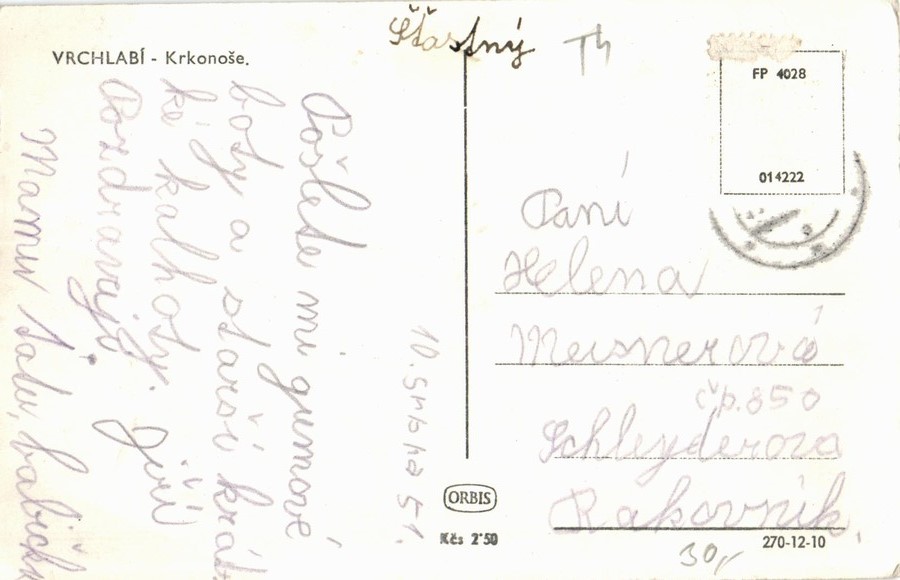 VRCHLABÍ - Krkonoše.
Šťastný
Th
Pošlete mi gumové
boty a starší krát-
ké kalhoty.
Pozdravuji Jiří
Mamu tátu, babičk
10. Srpna 51.
FP 4028
014222
Paní
Helena
Meisnerová
čp. 850
Schleyderova
Rakovník.
ORBIS
Kčs 2·50
270-12-10
30,-